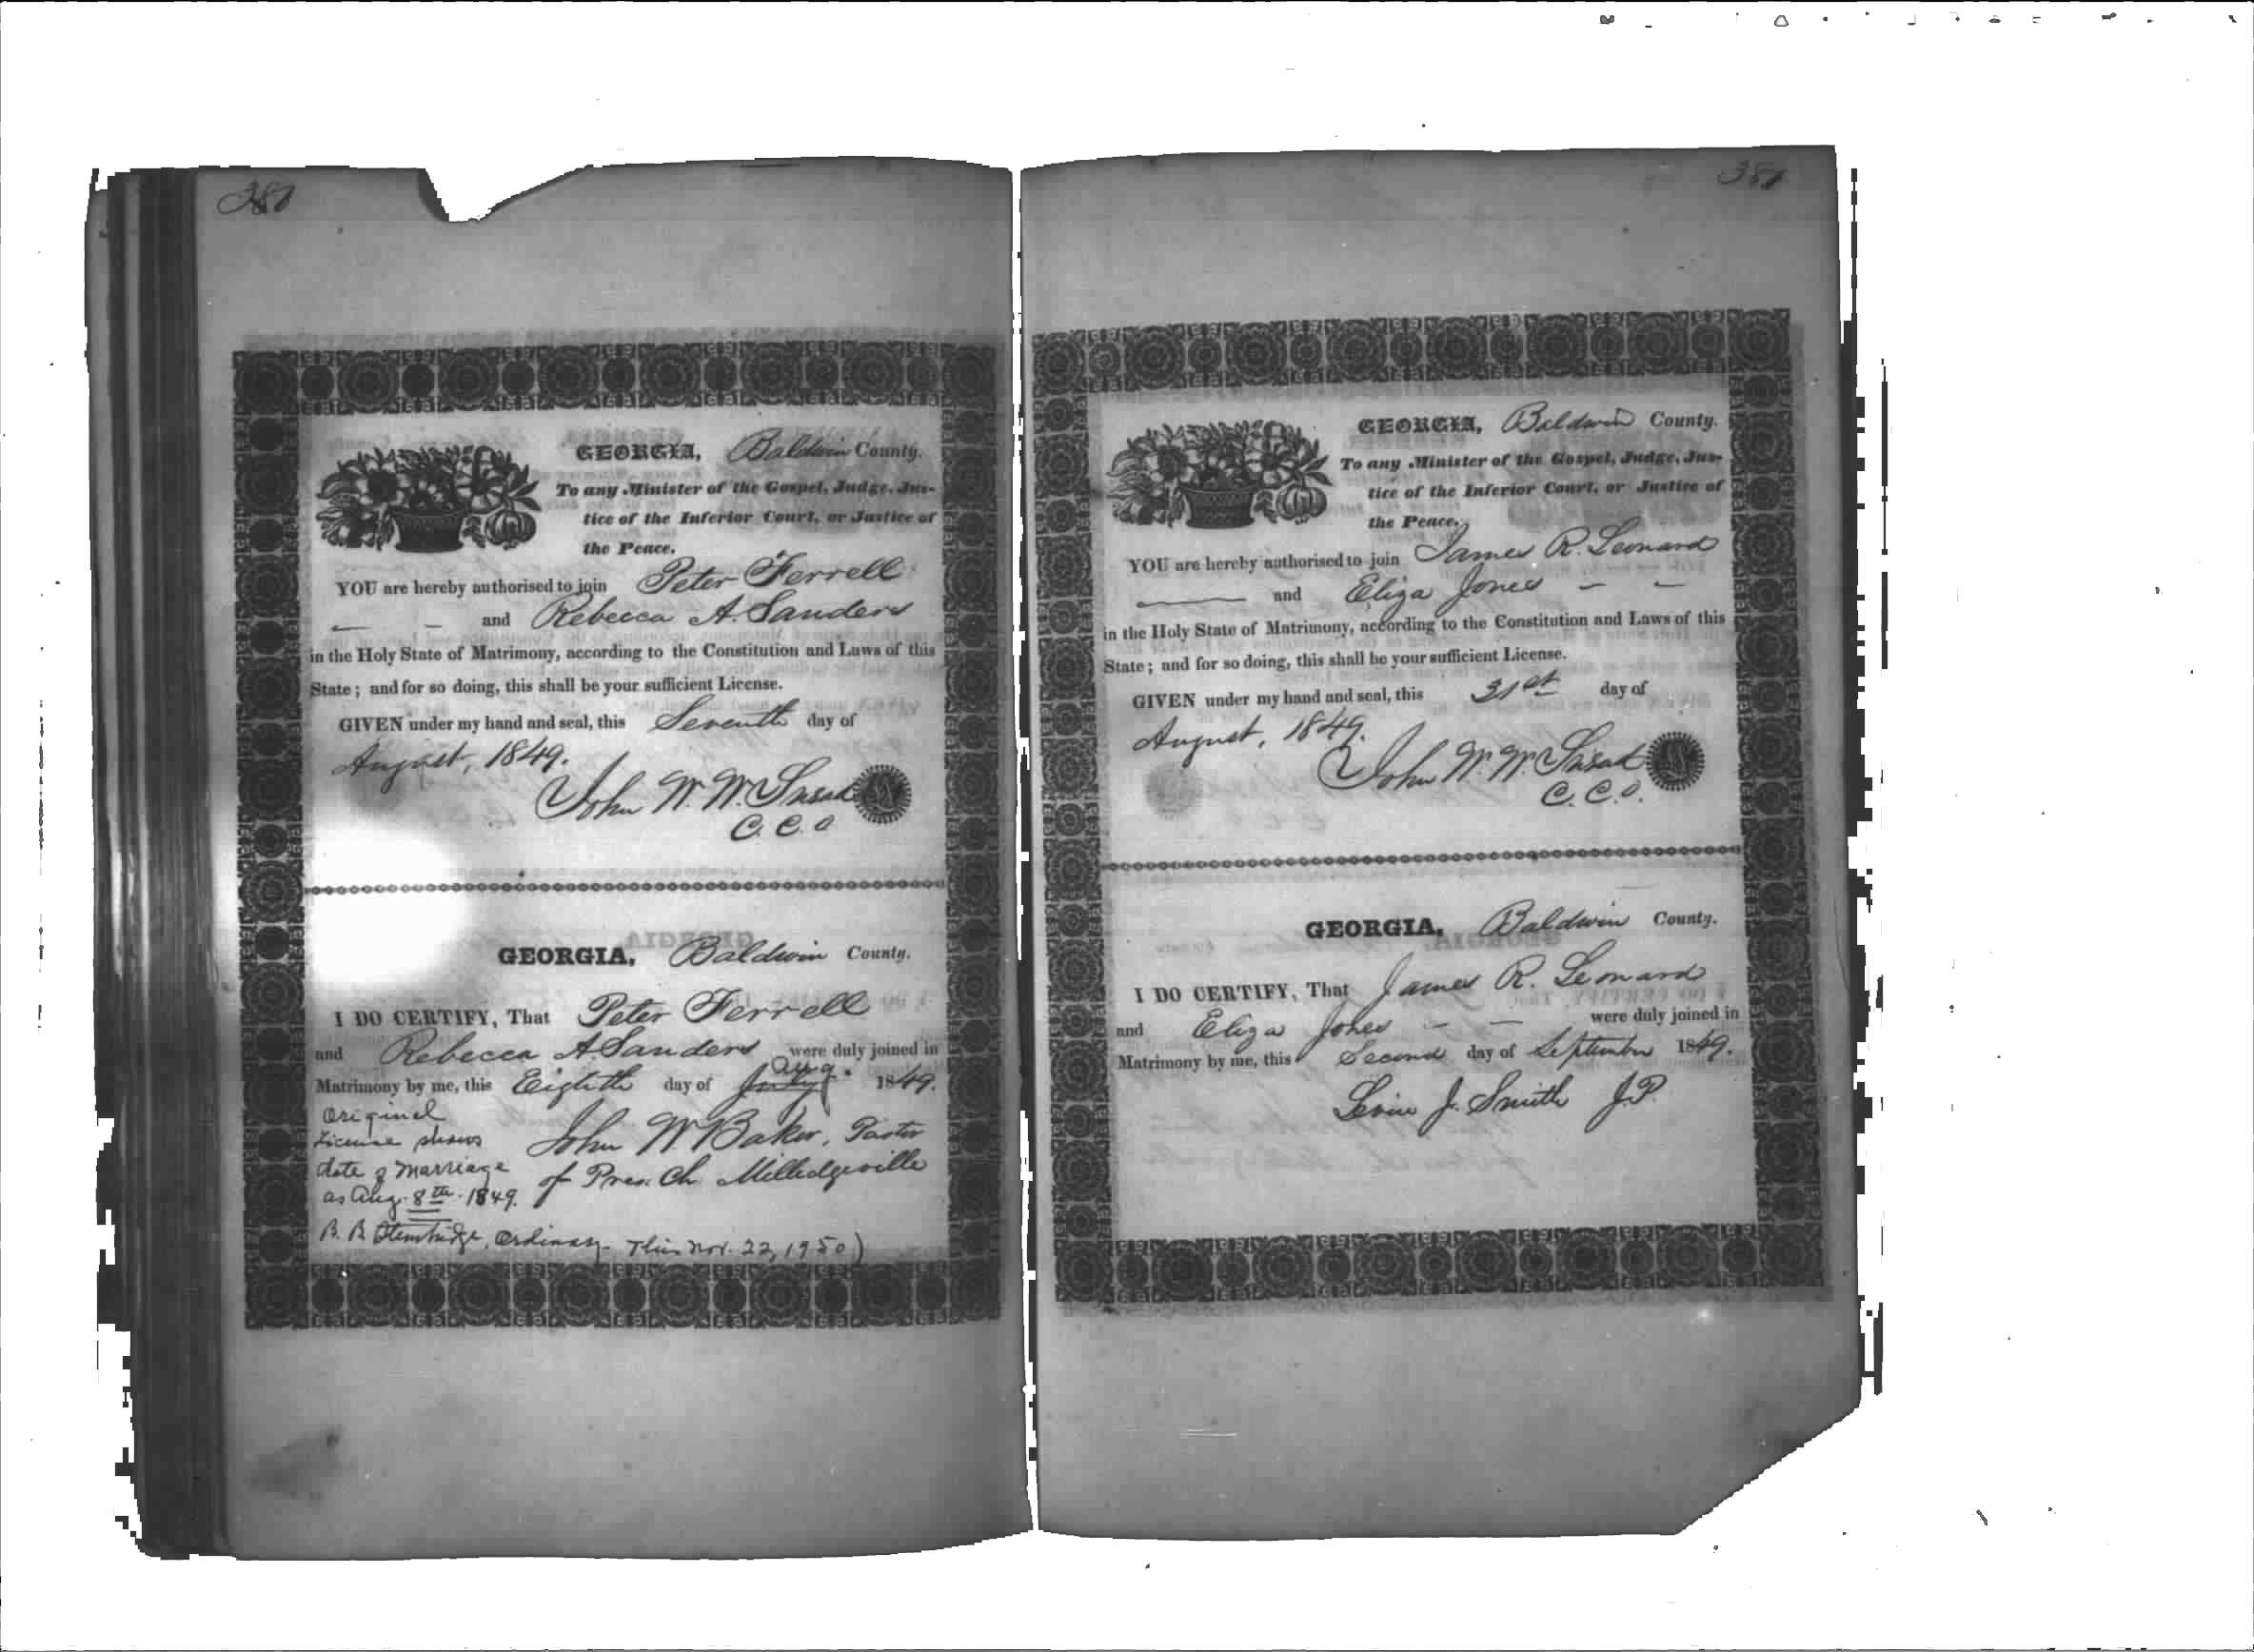 381
GEORGIA, Baldwin County.
To any Minister of the Gospel, Judge, Jus-
tice of the Inferior Court, or Justice of
the Peace.
YOU are hereby authorised to join Peter Ferrell
— — and Rebecca A. Sanders
in the Holy State of Matrimony, according to the Constitution and Laws of this
State; and for so doing, this shall be your sufficient License.
GIVEN under my hand and seal, this Seventh day of
August, 1849.
John W. W.
C. C. O
GEORGIA, Baldwin County.
I DO CERTIFY, That Peter Ferrell
and Rebecca A. Sanders were duly joined in
Aug.
Matrimony by me, this Eighth day of July 1849.
Original
License shows
date of Marriage
as Aug. 8th 1849.
John W. Baker, Pastor
of Pres. Ch. Milledgeville
B. B. Stembridge, Ordinary. This Nov. 22, 1950)
381
GEORGIA, Baldwin County.
To any Minister of the Gospel, Judge, Jus-
tice of the Inferior Court, or Justice of
the Peace.
YOU are hereby authorised to join James R. Leonard
— and Eliza Jones — —
in the Holy State of Matrimony, according to the Constitution and Laws of this
State; and for so doing, this shall be your sufficient License.
GIVEN under my hand and seal, this 31st day of
August, 1849.
John W. W.
C. C. O.
GEORGIA, Baldwin County.
I DO CERTIFY, That James R. Leonard
and Eliza Jones — — were duly joined in
Matrimony by me, this Second day of September 1849.
Levin J. Smith J.P.